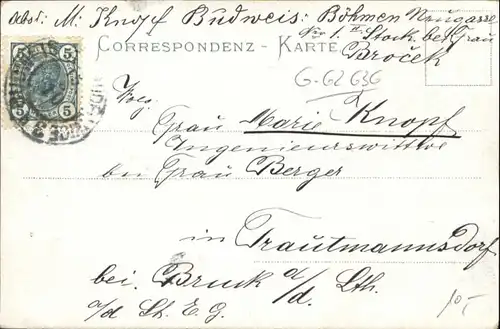 Absd: M: Knopf Budweis: Böhmen Neugasse
Nr 1. II Stock. bei Frau
Broček
CORRESPONDENZ - KARTE
G-62 636
Wolg.
Frau Marie Knopf
Ingenieurswittwe
bei Frau Berger
in Trautmannsdorf
bei Bruck a/d. Lth.
a/d St. E. G.
10,-
5 5
5 5